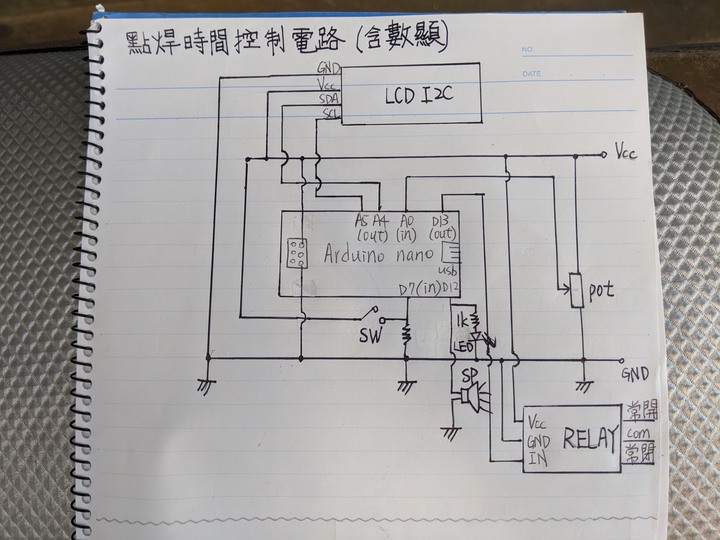 點焊時間控制電路(含數顯)
NO.
DATE
GND
Vcc
SDA
SCL
LCD I2C
Vcc
A5 A4 A0 D13
(out) (in) (out)
Arduino nano
usb
D7(in) D12
pot
SW
1k
LED
GND
SP
Vcc
GND
IN
RELAY
常開
com
常閉